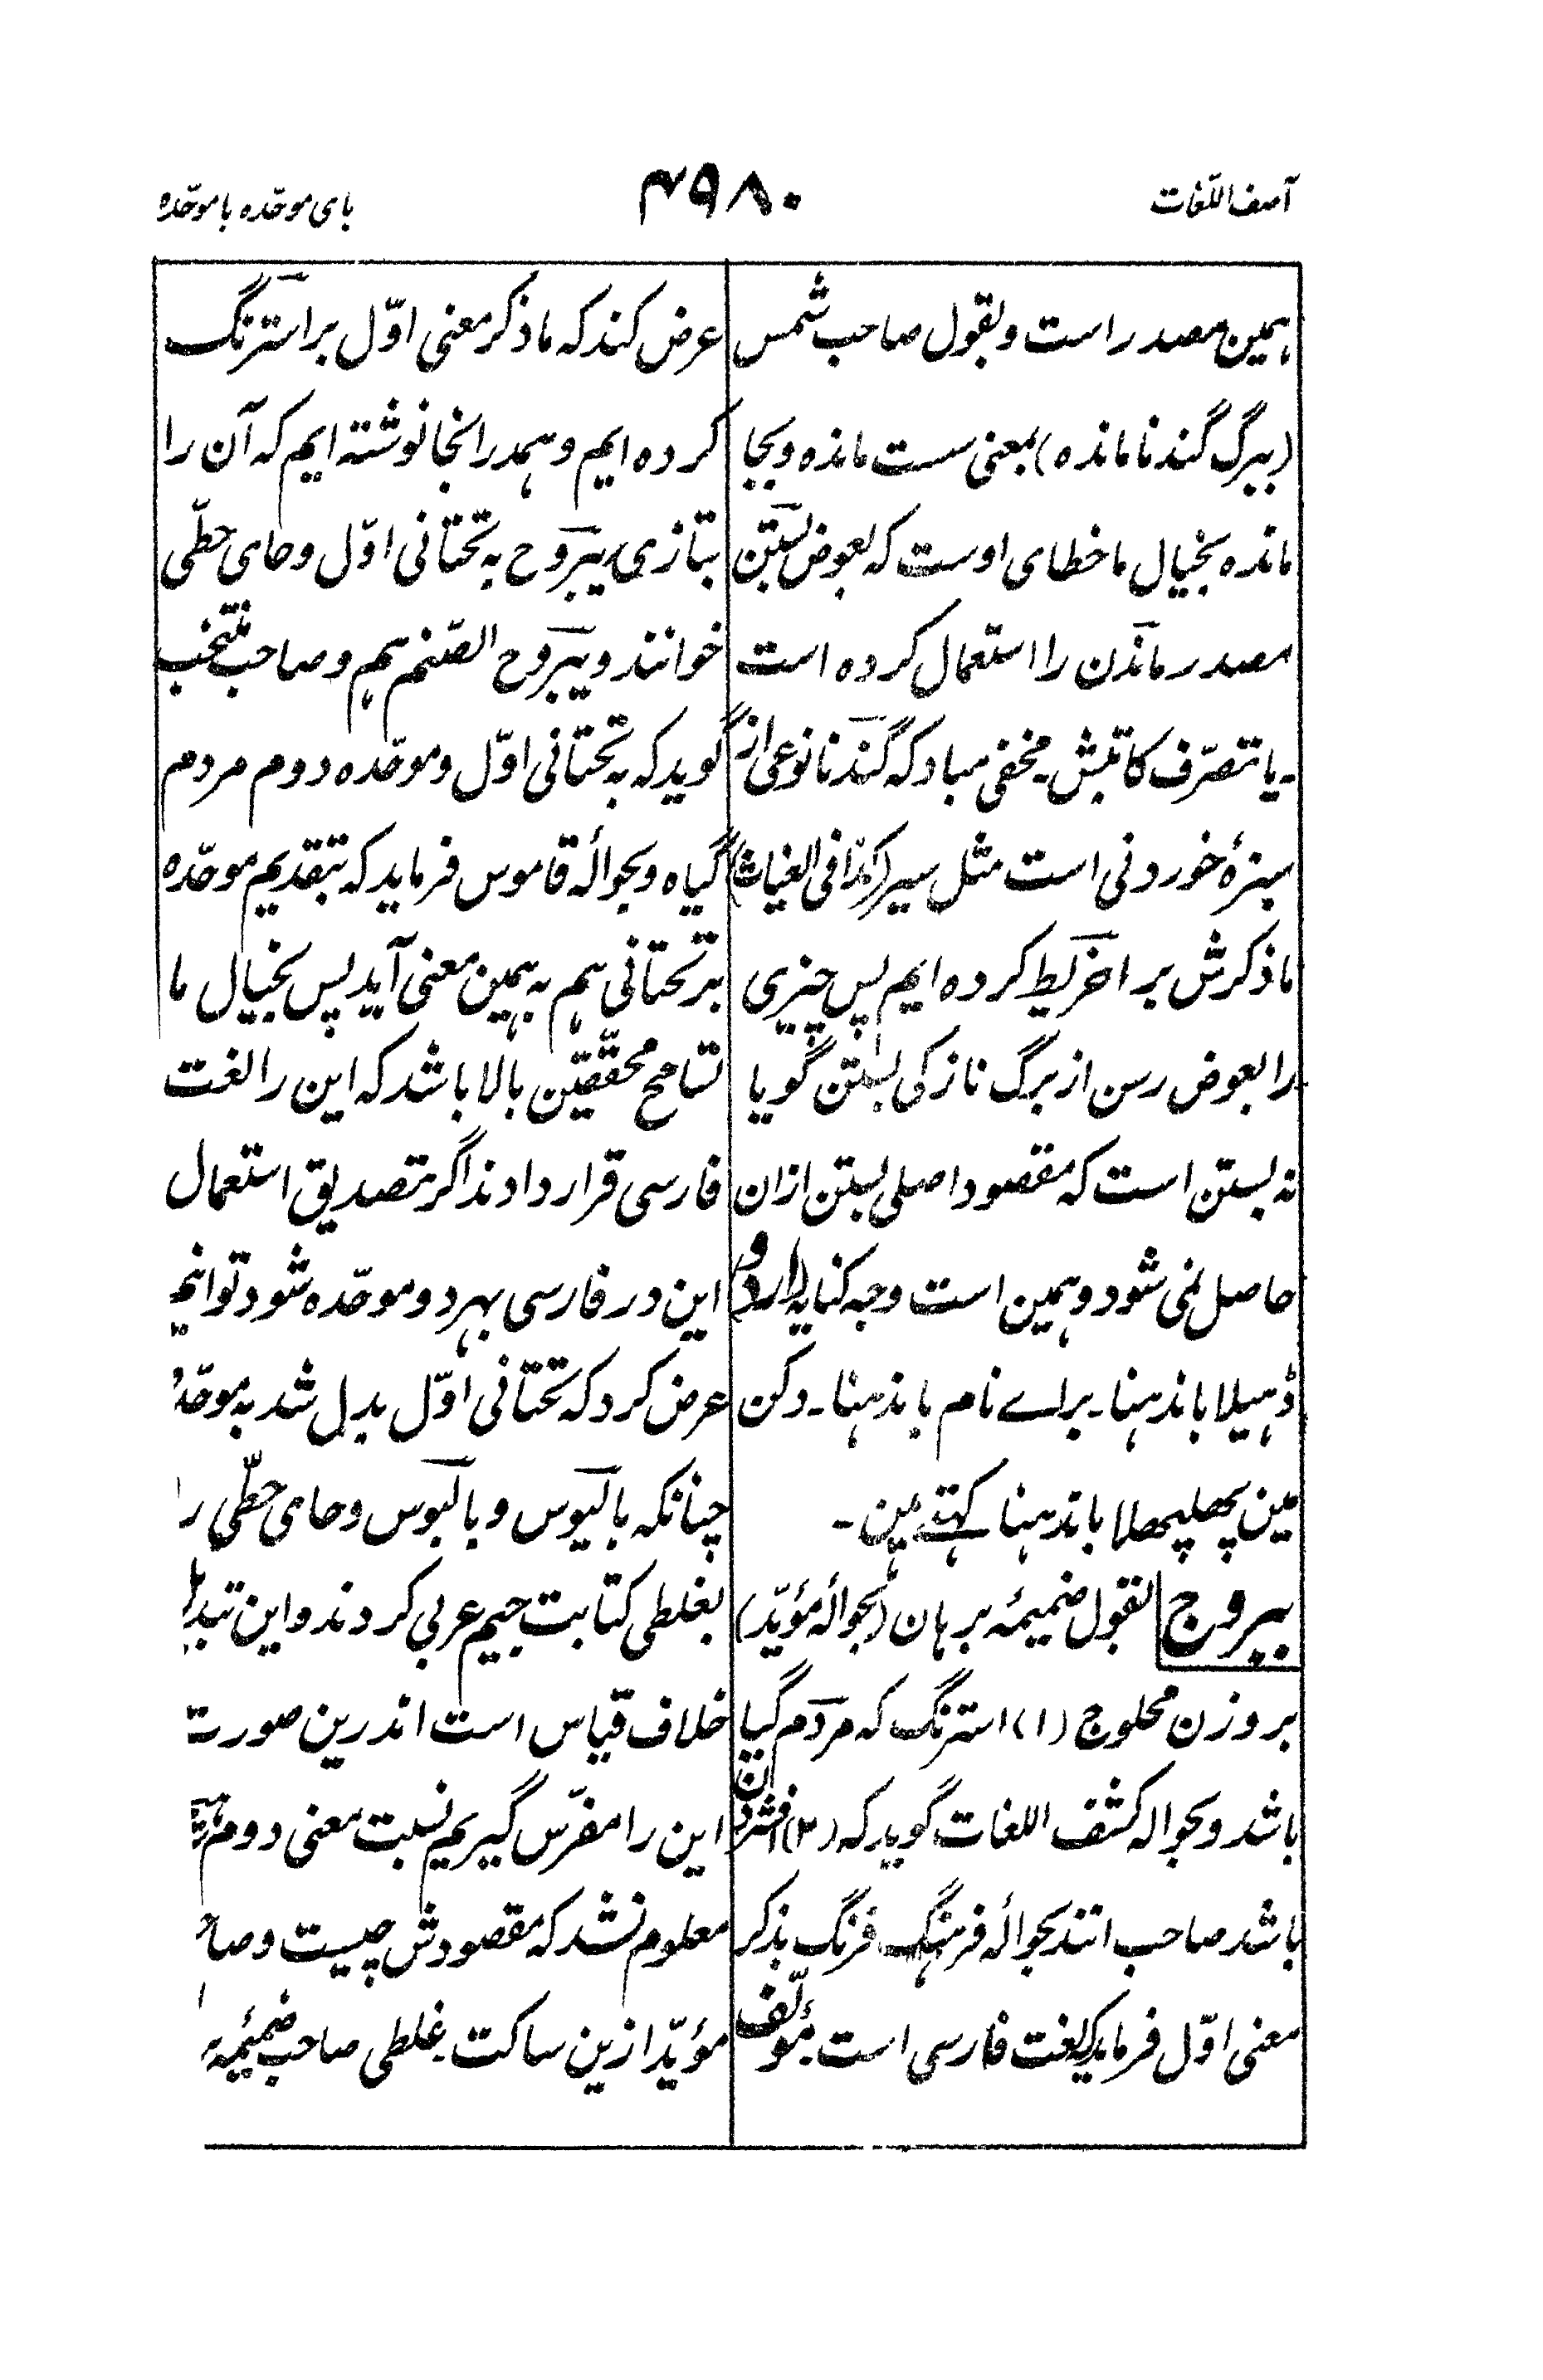 آصف اللّغات
۴۹۸۰
بای موحّده با موحّده
ہمین مصدر است و بقول صاحب شمس
(ببرگ گندنا ماندہ) بمعنی سست ماندہ و بجا
ماندہ بخیال ما خطای اوست کہ بعوض بستن
مصدر ماندن را استعمال کردہ است
۔یا تصرّف کاتبش۔ مخفی مباد کہ گندنا نوعی از
سبزۂ خوردنی است مثل سیر (کذا فی الغیاث)
ما ذکرش بر اخریط کردہ ایم پس چیزی
را بعوض رسن از برگ نازکی بستن گویا
نہ بستن است کہ مقصود اصلی بستن ازان
حاصل نمی شود و ہمین است وجہ کنایہ (اردو)
ڈہیلا باندہنا۔ براے نام باندہنا۔ دکن
مین پھلپھلا باندہنا کہتے ہین۔
ببروج بقول ضمیمۂ برہان (بحوالۂ مؤیّد)
بر وزن محلوج (۱) استرنگ کہ مردم گیا
باشد و بحوالہ کشف اللغات گوید کہ (۲) افشردن
باشد صاحب انند بحوالۂ فرہنگ فرنگ بذکر
معنی اوّل فرماید کہ لغت فارسی است۔ مؤلّف
عرض کند کہ ما ذکر معنی اوّل بر استرنگ
کردہ ایم و ہمدرانجا نوشتہ ایم کہ آن را
بتازی یبروح بہ تحتانی اوّل و حای حطّی
خوانند و یبروح الصّنم ہم و صاحب منتخب
گوید کہ بہ تحتانی اوّل و موحّدہ دوم مردم
گیاہ و بحوالۂ قاموس فرماید کہ بتقدیم موحّدہ
بر تحتانی ہم بہ ہمین معنی آید پس بخیال ما
تسامح محققّین بالا باشد کہ این را لغت
فارسی قرار دادند اگر تصدیق استعمال
این در فارسی بہر دو موحّدہ شود توانیم
عرض کرد کہ تحتانی اوّل بدل شد بہ موحّدہ
چنانکہ بالیوس و بالبوس و حای حطّی را
بغلطی کتابت جیم عربی کردند و این تبدیل
خلاف قیاس است اندرین صورت
این را مفرّس گیریم نسبت معنی دوم
معلوم نشد کہ مقصودش چیست و صا
مؤیّد ازین ساکت۔ غلطی صاحب ضمیمہ